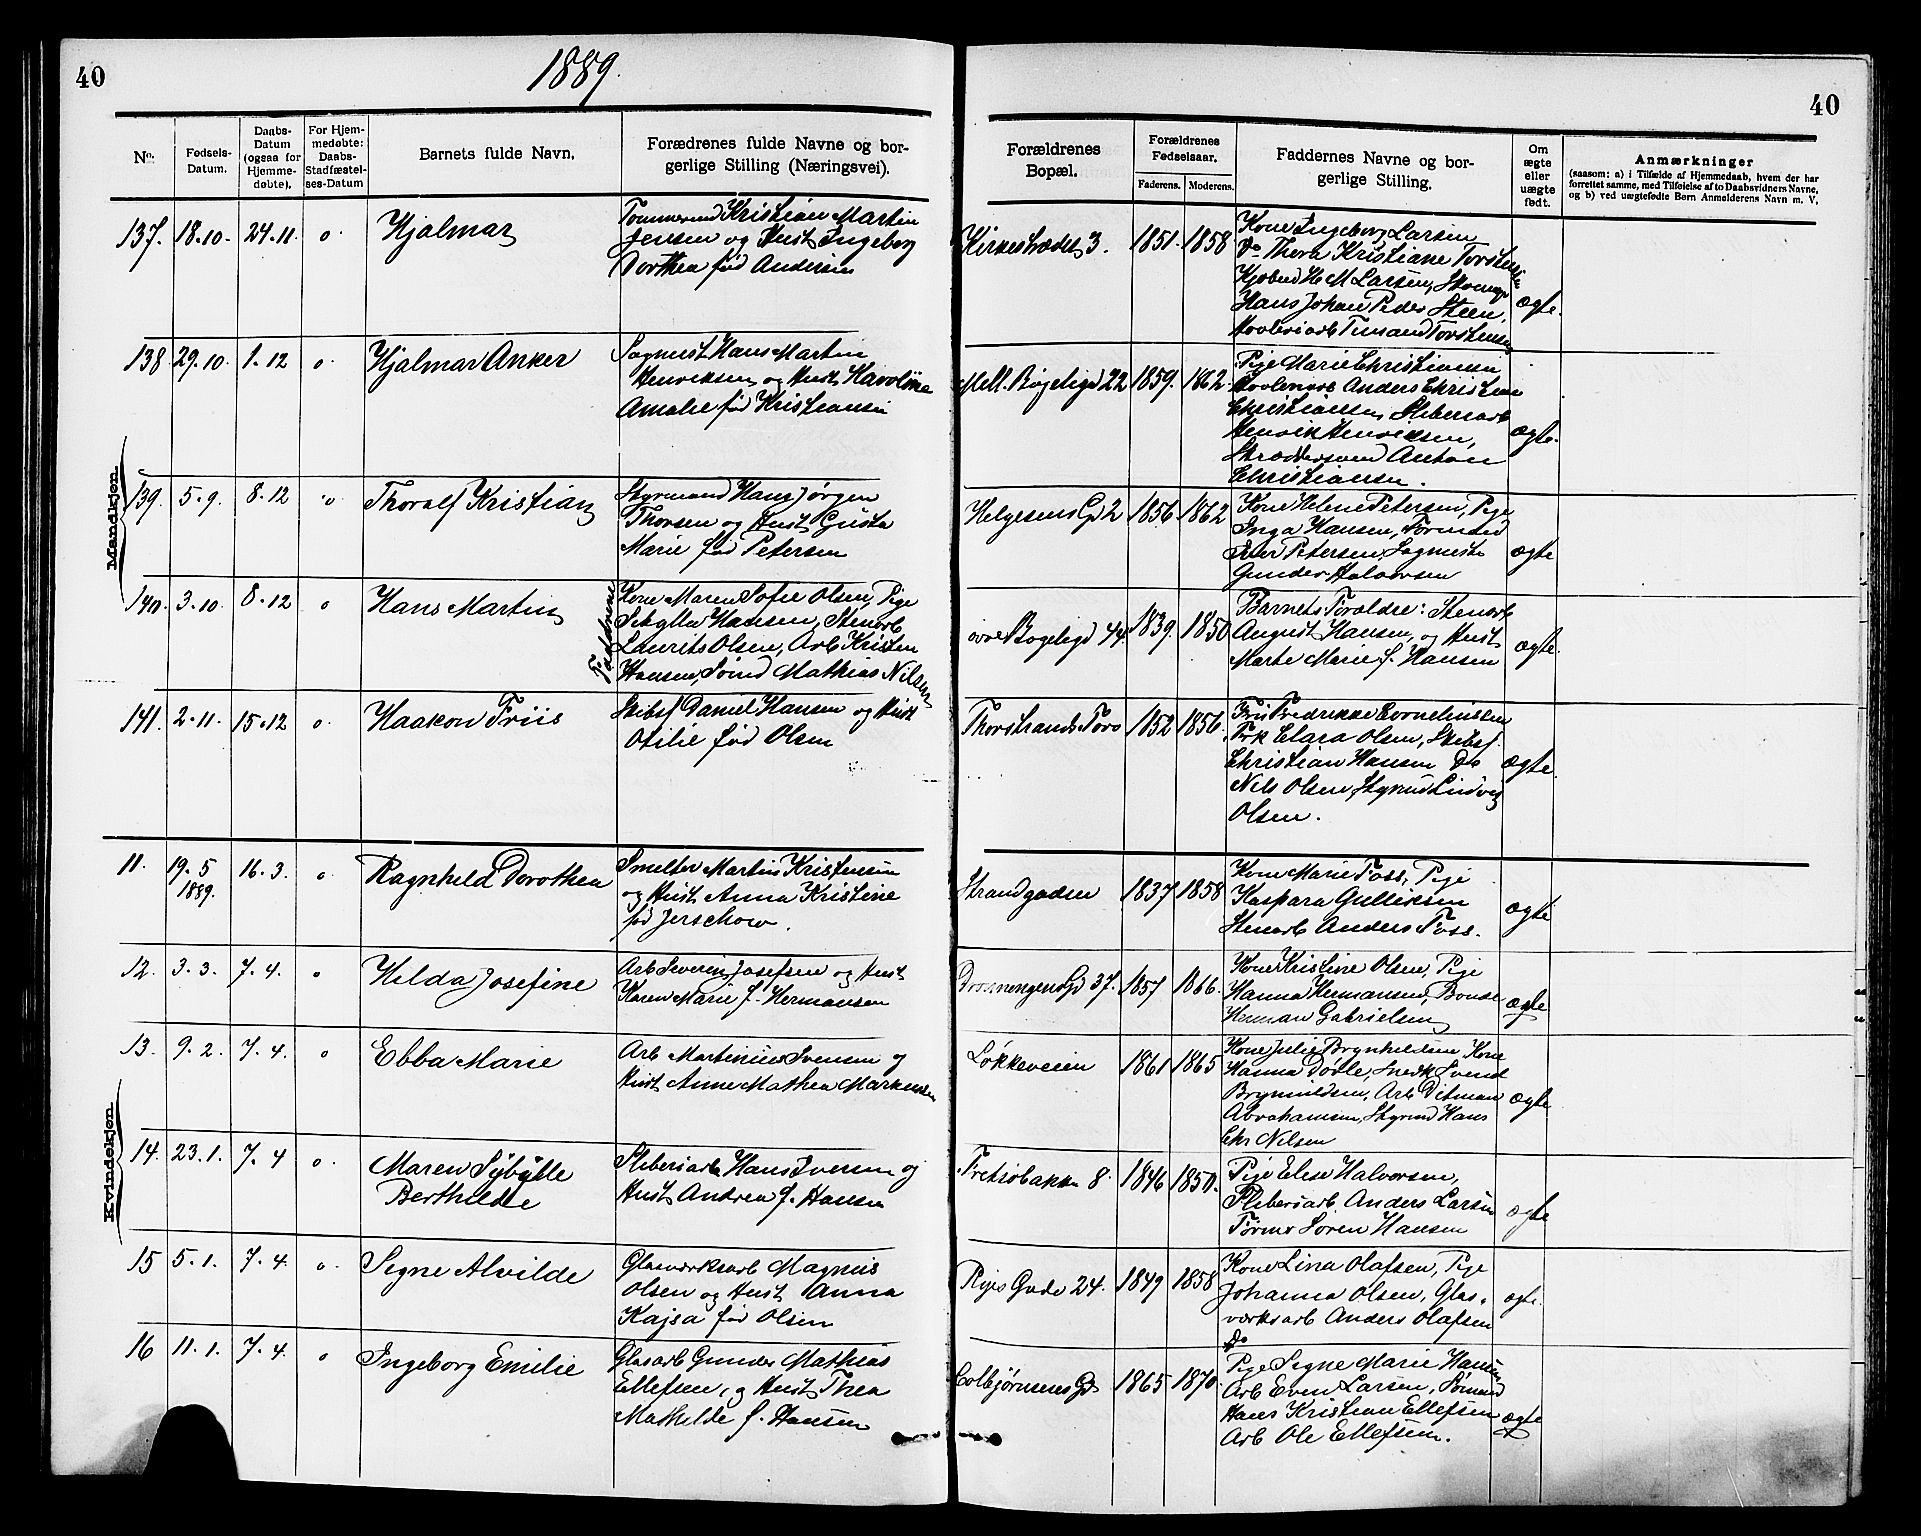 40
1889.
40
No:
Fødsels-
Datum.
Daabs-
Datum
(ogsaa for
Hjemme-
døbte).
For Hjem-
medøbte:
Daabs-
Stadfæstel-
ses-Datum
Barnets fulde Navn.
Forældrenes fulde Navne og bor-
gerlige Stilling (Næringsvei).
Forældrenes
Bopæl.
Forældrenes
Fødselsaar.
Faderens. Moderens.
Faddernes Navne og bor-
gerlige Stilling.
Om
ægte
eller
uægte
født.
Anmærkninger
(saasom: a) i Tilfælde af Hjemmedaab, hvem der har
forrettet samme, med Tilføielse af to Daabsvidners Navne,
og b) ved uægtefødte Børn Anmelderens Navn m. V.
Mandkjøn.
137. 18.10. 24.11. o Hjalmar
Tømmermd Kristian Martin
Jensen og Hust Ingeborg
Dorthea fød Andersen
Kirkestrædet 3. 1851. 1858
Kone Ingeborg Larsen
Do Thora Kristiane Torstensen
Kjøbmd H M Larsen, Skomgr
Hans Johan Peder Steen,
Høvleriarb Timand Torstensen
ægte.
138 29.10. 1.12 o. Hjalmar Anker
Sagmest. Hans Martin
Henriksen og Hust Karoline
Amalie fød Kristiansen
Mell. Bøgeligd 22 1859. 1862.
Pige Marie Christiansen
Høvleriarb Anders Christian
Christiansen, Sliberiarb
Henrik Henriksen,
Skræddersvend Anton
Christiansen.
ægte.
139. 5.9. 8.12 o Thoralf Kristian
Styrmand Hans Jørgen
Thorsen og Hust Gusta
Marie fød Petersen
Helgesens Gd 2 1856 1862
Kone Helene Petersen, Pige
Inga Hansen, Tørmand
Iver Petersen, Sagmester
Gunder Halvorsen
ægte
140. 3.10. 8.12 o Hans Martin
Fadderne
Kone Maren Sofie Olsen, Pige
Sibylla Hansen, Stenarb
Laurits Olsen, Arb Kristen
Hansen, Sømd Mathias Nilsen
øvre Bøgeligd 44. 1839. 1850
Barnets Forældre: Stenarb
August Hansen, og Hust
Marte Marie f. Hansen
ægte.
141. 2.11. 15.12 o. Haakon Friis
Skibsf Daniel Hansen og Hust
Otilie fød Olsen
Thorstrands Torv 1852 1856.
Fru Fredrikke Cornelius­sen
Frk Clara Olsen, Skibsf.
Christian Hansen Do
Nils Olsen, Styrmd Ludvig
Olsen.
ægte.
Kvindekjøn.
11. 19.5
1889. 16.3. o Ragnhild Dorothea
Smelter Martin Kristensen
og Hust Anna Kristine
fød Jerschow.
Strandgaden 1837 1858
Kone Marie Foss, Pige
Kaspara Gulliksen
Stenarb Anders Foss.
ægte
12. 3.3. 7.4. o Hilda Josefine
Arb Severin Josefsen og Hust
Karen Marie f. Hermansen
Dronningens Gd 37. 1857 1866.
Kone Kristine Olsen, Pige
Hanna Hermansen, Bonde
Herman Gabrielsen
ægte
13. 9.2. 7.4. o Ebba Marie
Arb Martinius Svensen og
Hust Anne Mathea Markussen
Løkkeveien 1861 1865
Kone Julie Brynhildsen, Kone
Hanna Dørle, Snedk Svend
Brynhildsen, Arb Ditman
Abrahamsen, Styrmd Hans
Chr Nilsen
ægte
14. 23.1. 7.4 o. Maren Sybylle
Berthilde
Sliberiarb Hans Iversen og
Hust Andrea f. Hansen
Fretsøbakken 8. 1846 1850.
Pige Elise Halvorsen,
Sliberiarb Anders Larsen
Tørmr Søren Hansen
ægte
15 5.1. 7.4. o. Signe Alvilde
Glasværksarb Magnus
Olsen og Hust Anna
Kajsa fød Olsen
Ryes Gade 24. 1849 1858
Kone Lina Olafsen, Pige
Johanna Olsen, Glas-
værksarb Anders Olafsen
Do
ægte.
16 11.1. 7.4. o Ingeborg Emilie
Glasarb Gunder Mathias
Ellefsen, og Hust Thea
Mathilde f. Hansen
Colbjørnsens Gd 1865 1870.
Pige Signe Marie Hansen
Arb Even Larsen, Sømand
Hans Kristian Ellefsen
Arb Ole Ellefsen.
ægte